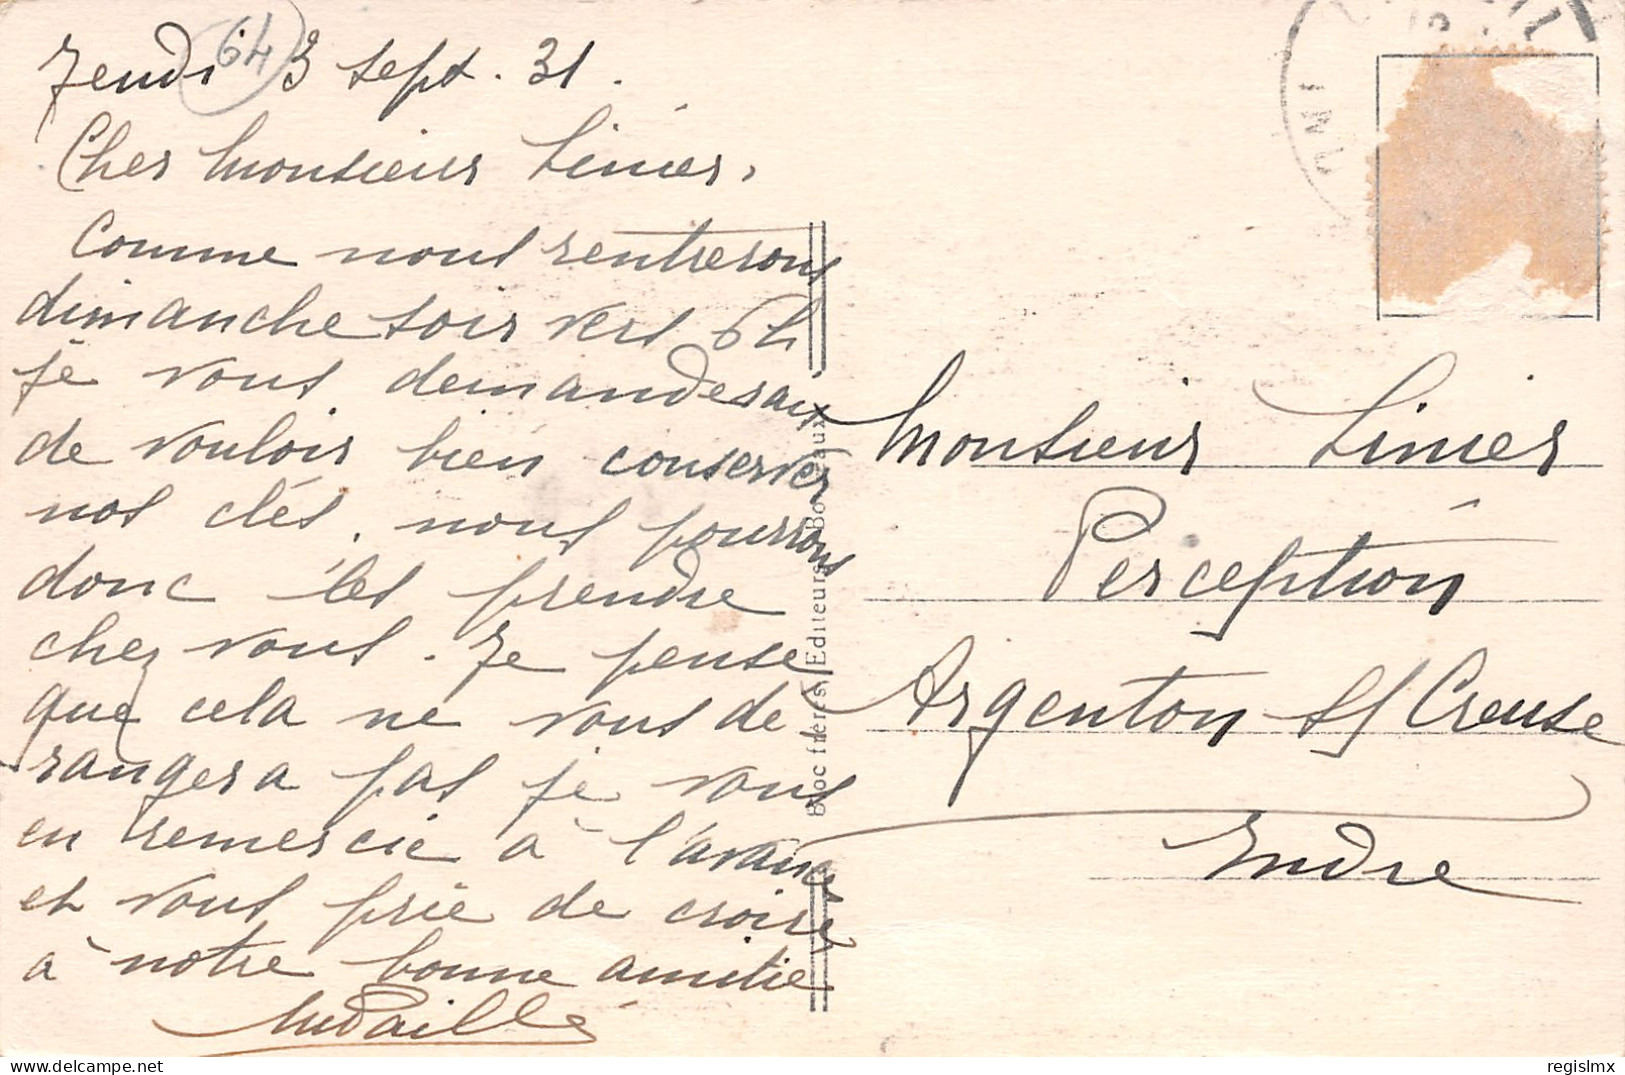 64
Jeudi 3 sept. 31.
Cher Monsieur Linier,
Comme nous rentrerons
dimanche soir vers 6h
je vous demanderais
de vouloir bien conserver
nos clés. nous pourrons
donc les prendre
chez vous. Je pense
que cela ne vous dé
rangera pas je vous
en remercie à l'avance
et vous prie de croire
à notre bonne amitié
Bloc frères, Editeurs, Bordeaux
Monsieur Linier
Perception
Argenton s/ Creuse
Indre
regislmx